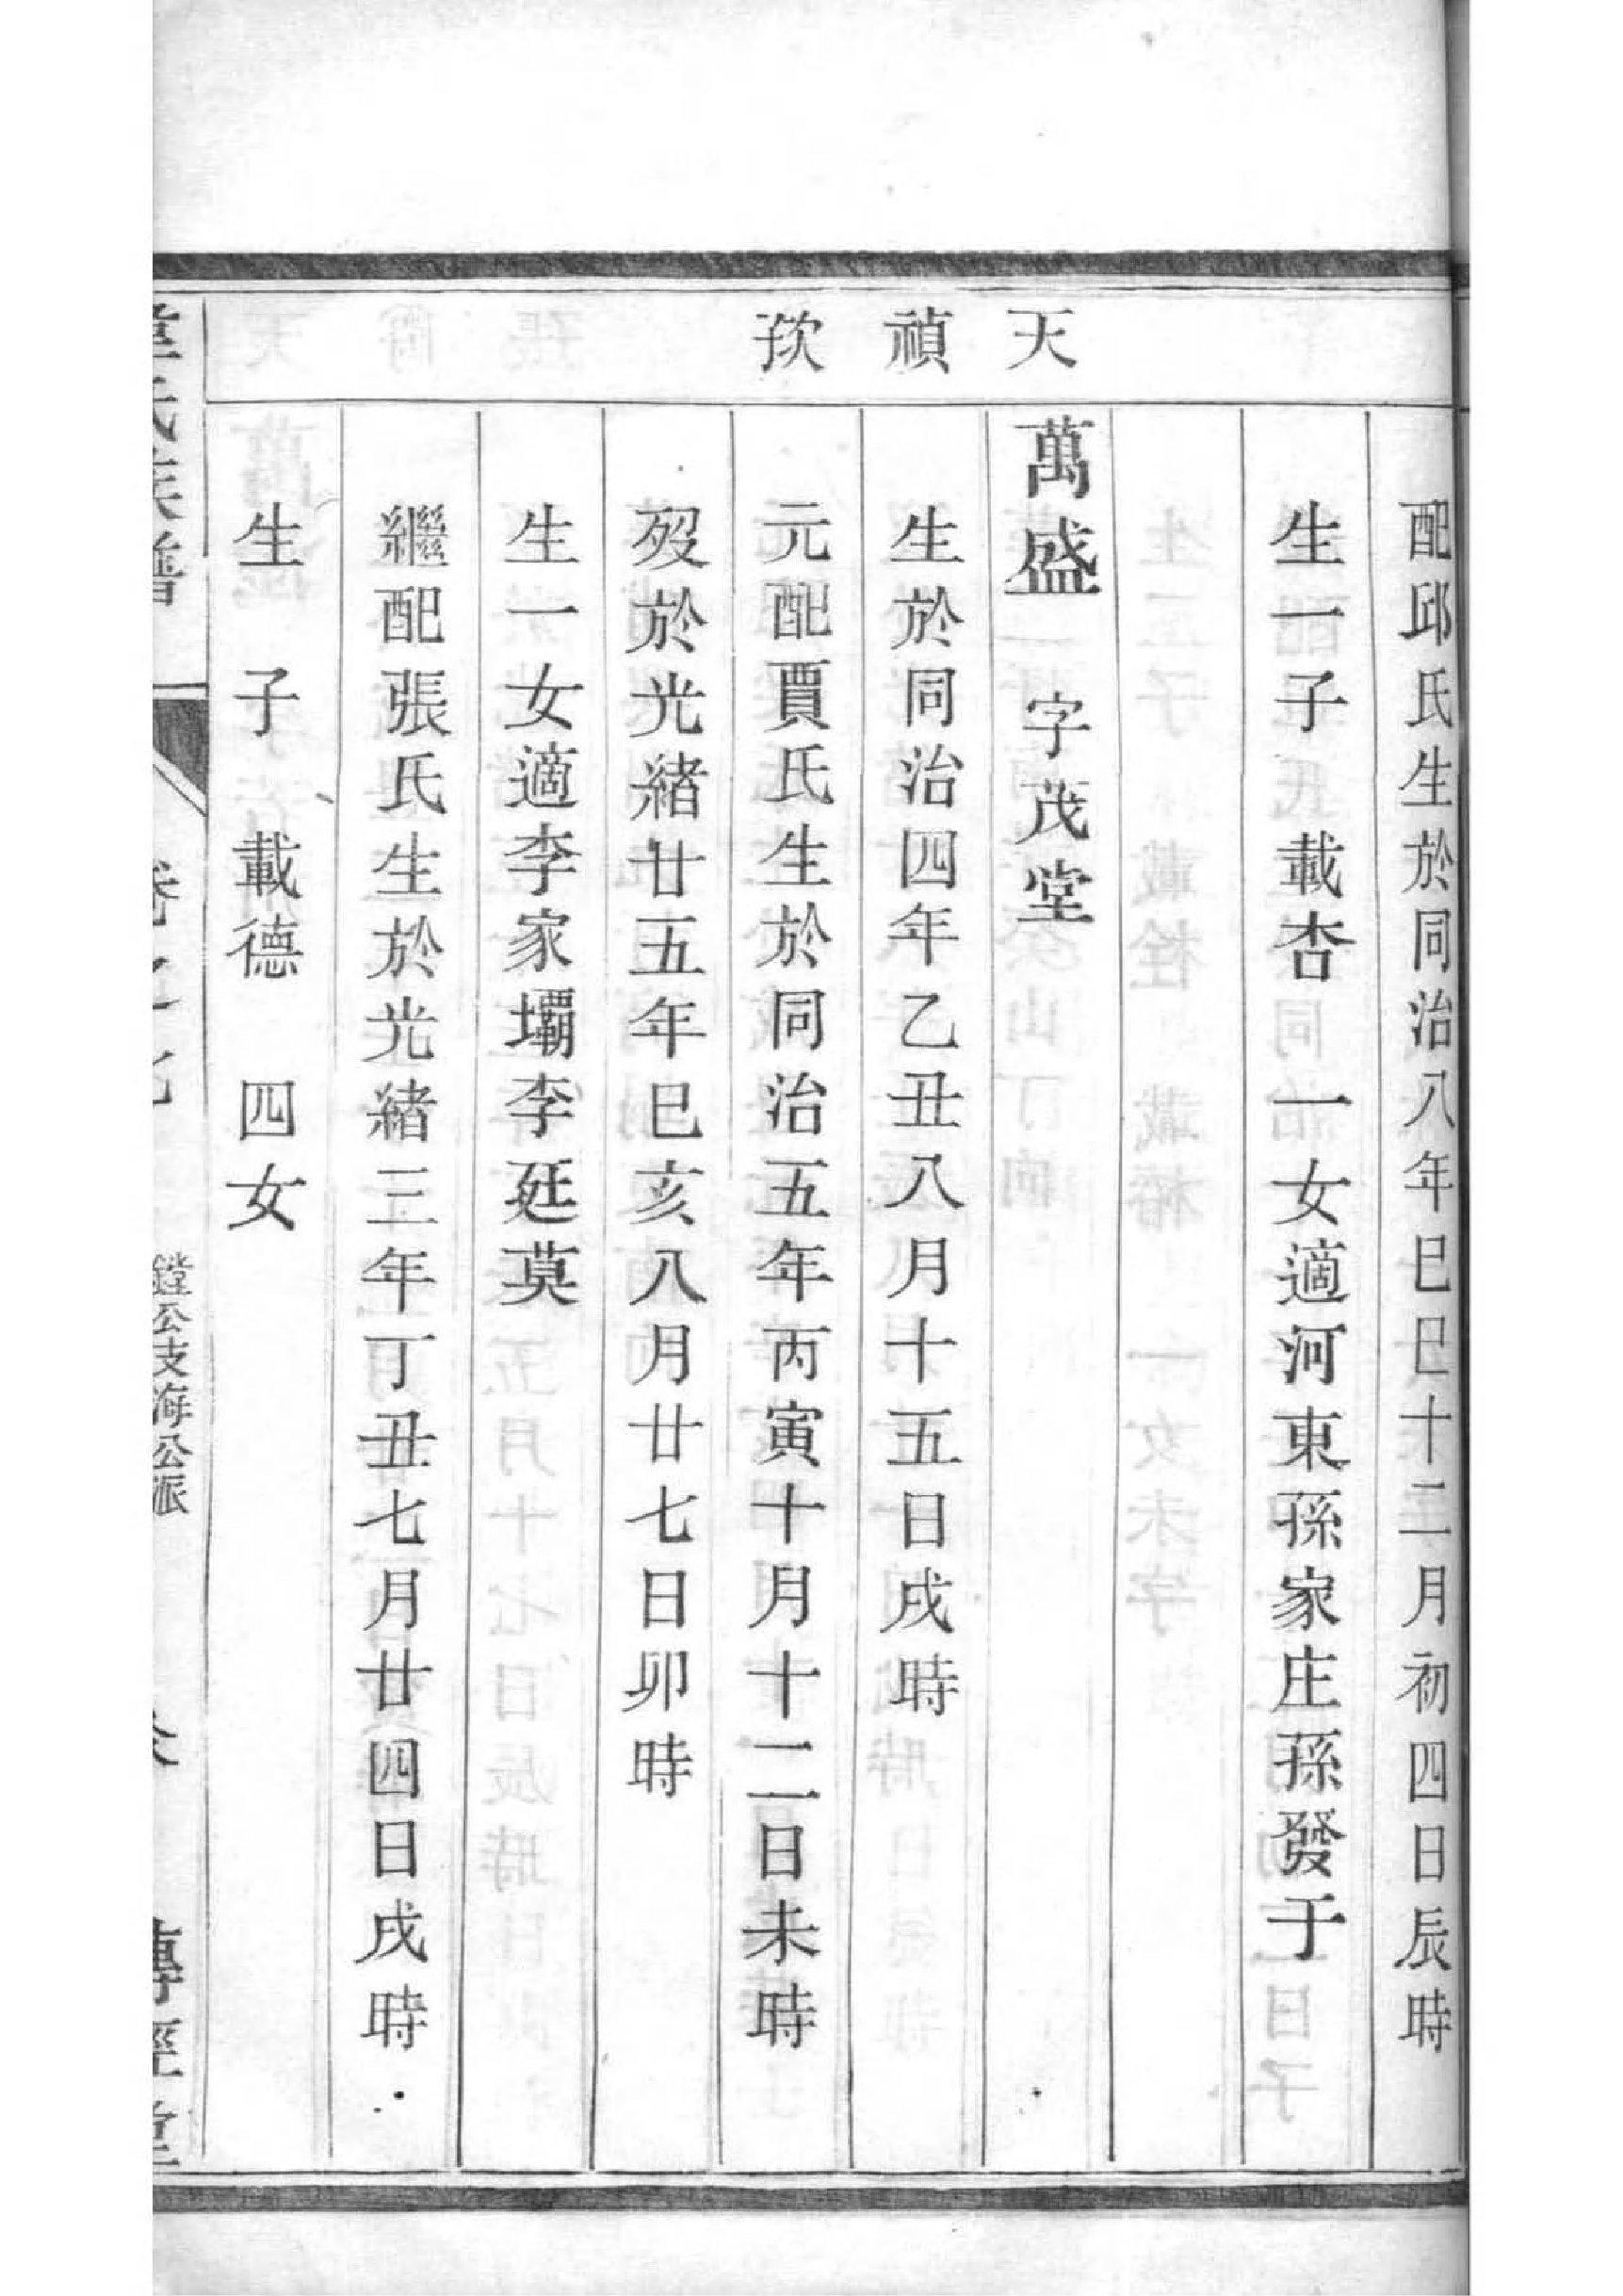 天禎欻
配邱氏生於同治八年巳巳十二月初四日辰時
生一子 載杏 一女適河東孫家庄孫發于
萬盛 字茂堂
生於同治四年乙丑八月十五日戌時
元配賈氏生於同治五年丙寅十月十二日未時
歿於光緒廿五年巳亥八月廿七日卯時
生一女適李家壩李廷莫
繼配張氏生於光緒三年丁丑七月廿四日戌時
生 子 載德 四女
氏族譜
卷之
鏜公支海公派
傳經堂